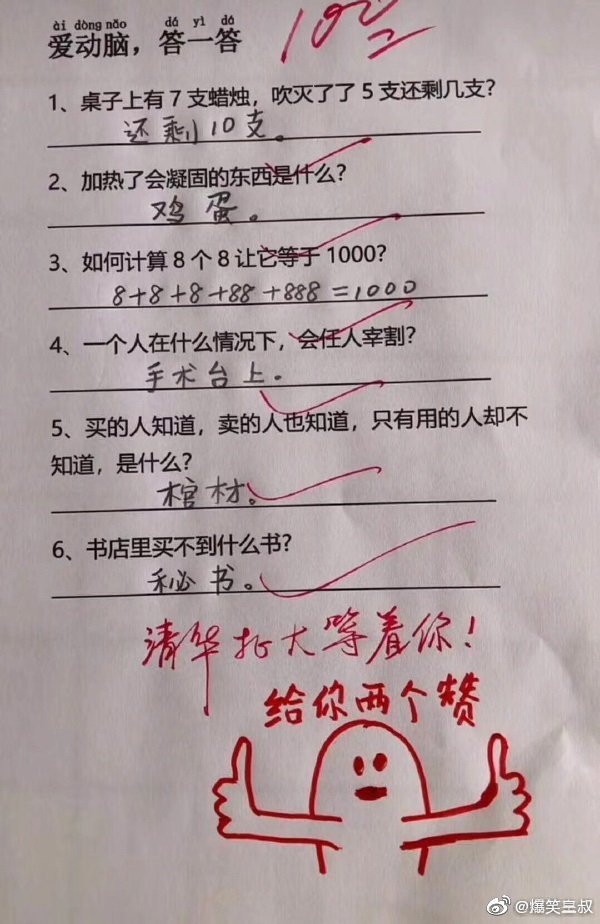 ài dòng nǎo dá yì dá
爱动脑，答一答
100
1、桌子上有7支蜡烛，吹灭了了5支还剩几支？
还剩10支。
2、加热了会凝固的东西是什么？
鸡蛋。
3、如何计算8个8让它等于1000？
8+8+8+88+888=1000
4、一个人在什么情况下，会任人宰割？
手术台上.
5、买的人知道，卖的人也知道，只有用的人却不
知道，是什么？
棺材。
6、书店里买不到什么书？
秘书。
清华北大等着你！
给你两个赞
@爆笑皇叔